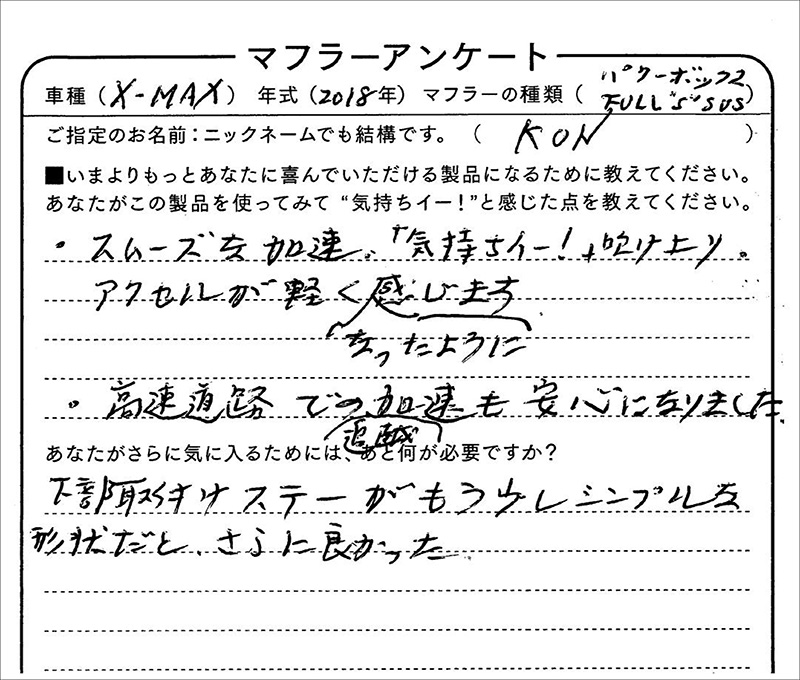 マフラーアンケート
パワーボックス
車種（X-MAX）年式（2018年）マフラーの種類（FULL "S" SUS）
ご指定のお名前：ニックネームでも結構です。（KON）
■いまよりもっとあなたに喜んでいただける製品になるために教えてください。
あなたがこの製品を使ってみて“気持ちイー！”と感じた点を教えてください。
・スムーズな加速、「気持ちイー！」吹け上り。
アクセルが軽く感じます
なったように
・高速道路での加速も安心になりました
追越
あなたがさらに気に入るためには、あと何が必要ですか？
下部取付けステーがもう少しシンプルな
形状だと、さらに良かった